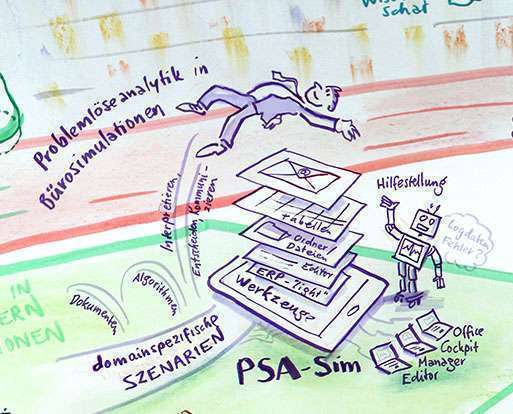 schaf
Problemlöseanalytik in
Bürosimulationen
Interpretieren,
Entscheiden, Kommuni-
zieren
@
Tabellen
Ordner
Dateien
Editor
"ERP-light"
Werkzeuge
Hilfestellung
Logdaten
Fehler?
IN
ERN
IONEN
Dokumenten
Algorithmen
domainspezifische
SZENARIEN
PSA-Sim
Office
Cockpit
Manager
Editor